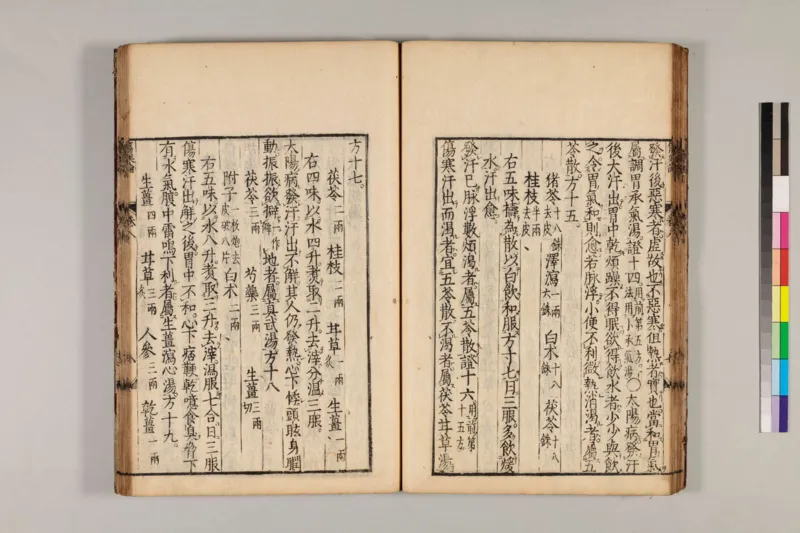 發汗後惡寒者虛故也不惡寒但熱者實也當和胃氣
屬調胃承氣湯證十四用前第五方法用小承氣湯〇太陽病發汗
後大汗出胃中乾煩躁不得眠欲得飲水者少少與飲
之令胃氣和則愈若脉浮小便不利微熱消渴者屬五
苓散方十五
猪苓十八銖去皮 澤瀉一兩六銖 白朮十八銖 茯苓十八銖
桂枝半兩去皮
右五味擣為散以白飲和服方寸匕日三服多飲煖
水汗出愈
發汗已脉浮數煩渴者屬五苓散證十六用前第十五方
傷寒汗出而渴者宜五苓散不渴者屬茯苓甘草湯
方十七
茯苓二兩 桂枝二兩 甘草一兩炙 生薑一兩
右四味以水四升煮取二升去滓分溫三服
太陽病發汗汗出不解其人仍發熱心下悸頭眩身瞤
動振振欲擗一作僻地者屬真武湯方十八
茯苓三兩 芍藥三兩 生薑三兩切
附子一枚炮去皮破八片 白朮二兩
右五味以水八升煮取三升去滓溫服七合日三服
傷寒汗出解之後胃中不和心下痞鞕乾噫食臭脅下
有水氣腹中雷鳴下利者屬生薑瀉心湯方十九
生薑四兩 甘草三兩炙 人參三兩 乾薑一兩